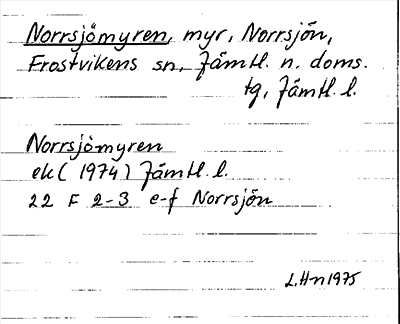 Norrsjömyren, myr, Norrsjön,
Frostvikens sn, Jämtl. n. doms.
tg, Jämtl. l.
Norrsjömyren
ek (1974) Jämtl. l.
22 F 2-3 e-f Norrsjön
L.Hn 1975